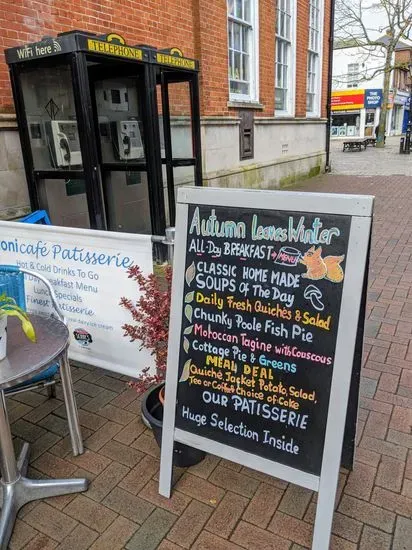 WiFi here
TELEPHONE
TELEPHONE
THE PHOTO SHOP
onicafé Patisserie
Hot & Cold Drinks To Go
y Breakfast Menu
Lunch Specials
Finest Patisserie
real dairy ice cream
Autumn Leaves Winter
ALL DAY BREAKFAST → MENU
CLASSIC HOME MADE
SOUPS OF THE DAY
Daily Fresh Quiches & Salad
Chunky Poole Fish Pie
Moroccan Tagine with Couscous
Cottage Pie & Greens
MEAL DEAL
Quiche, Jacket Potato, Salad,
Tea or Coffee, Choice of Cake
OUR PATISSERIE
Huge Selection Inside